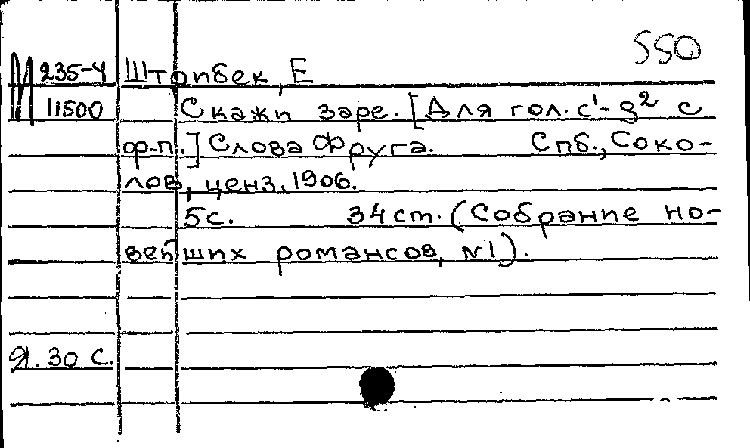 550
М 235-4 Штопбек, Е
11500 Скажи заре. [Для гол. c¹-g² с
ф-п.] Слова Фруга. Спб., Соко-
лов, ценз. 1906.
5с. 34 ст. (Собрание но-
вейших романсов, №1).
Я. 30 С.